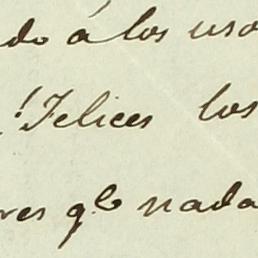 do á los uso
¡Felices los
res qe nada